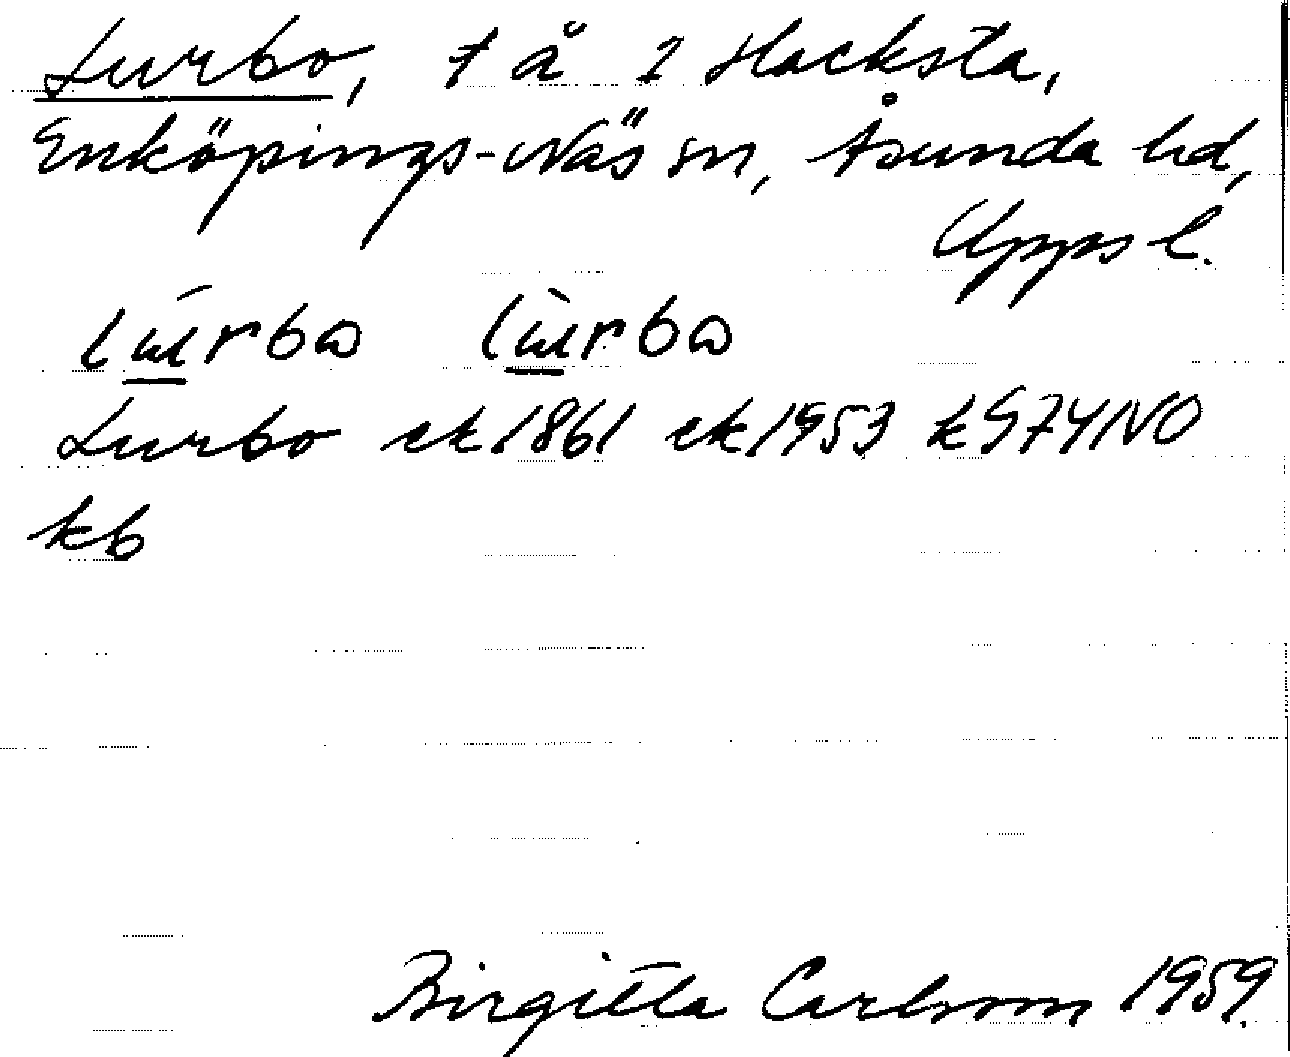 Lurbo, f å 2 Hacksta,
Enköpings-Näs sn, Åsunda hd,
Upps l.
Lurbo ek 1861 ek 1953 k S74 1 NO
kb
Birgitta Carlsson 1959.